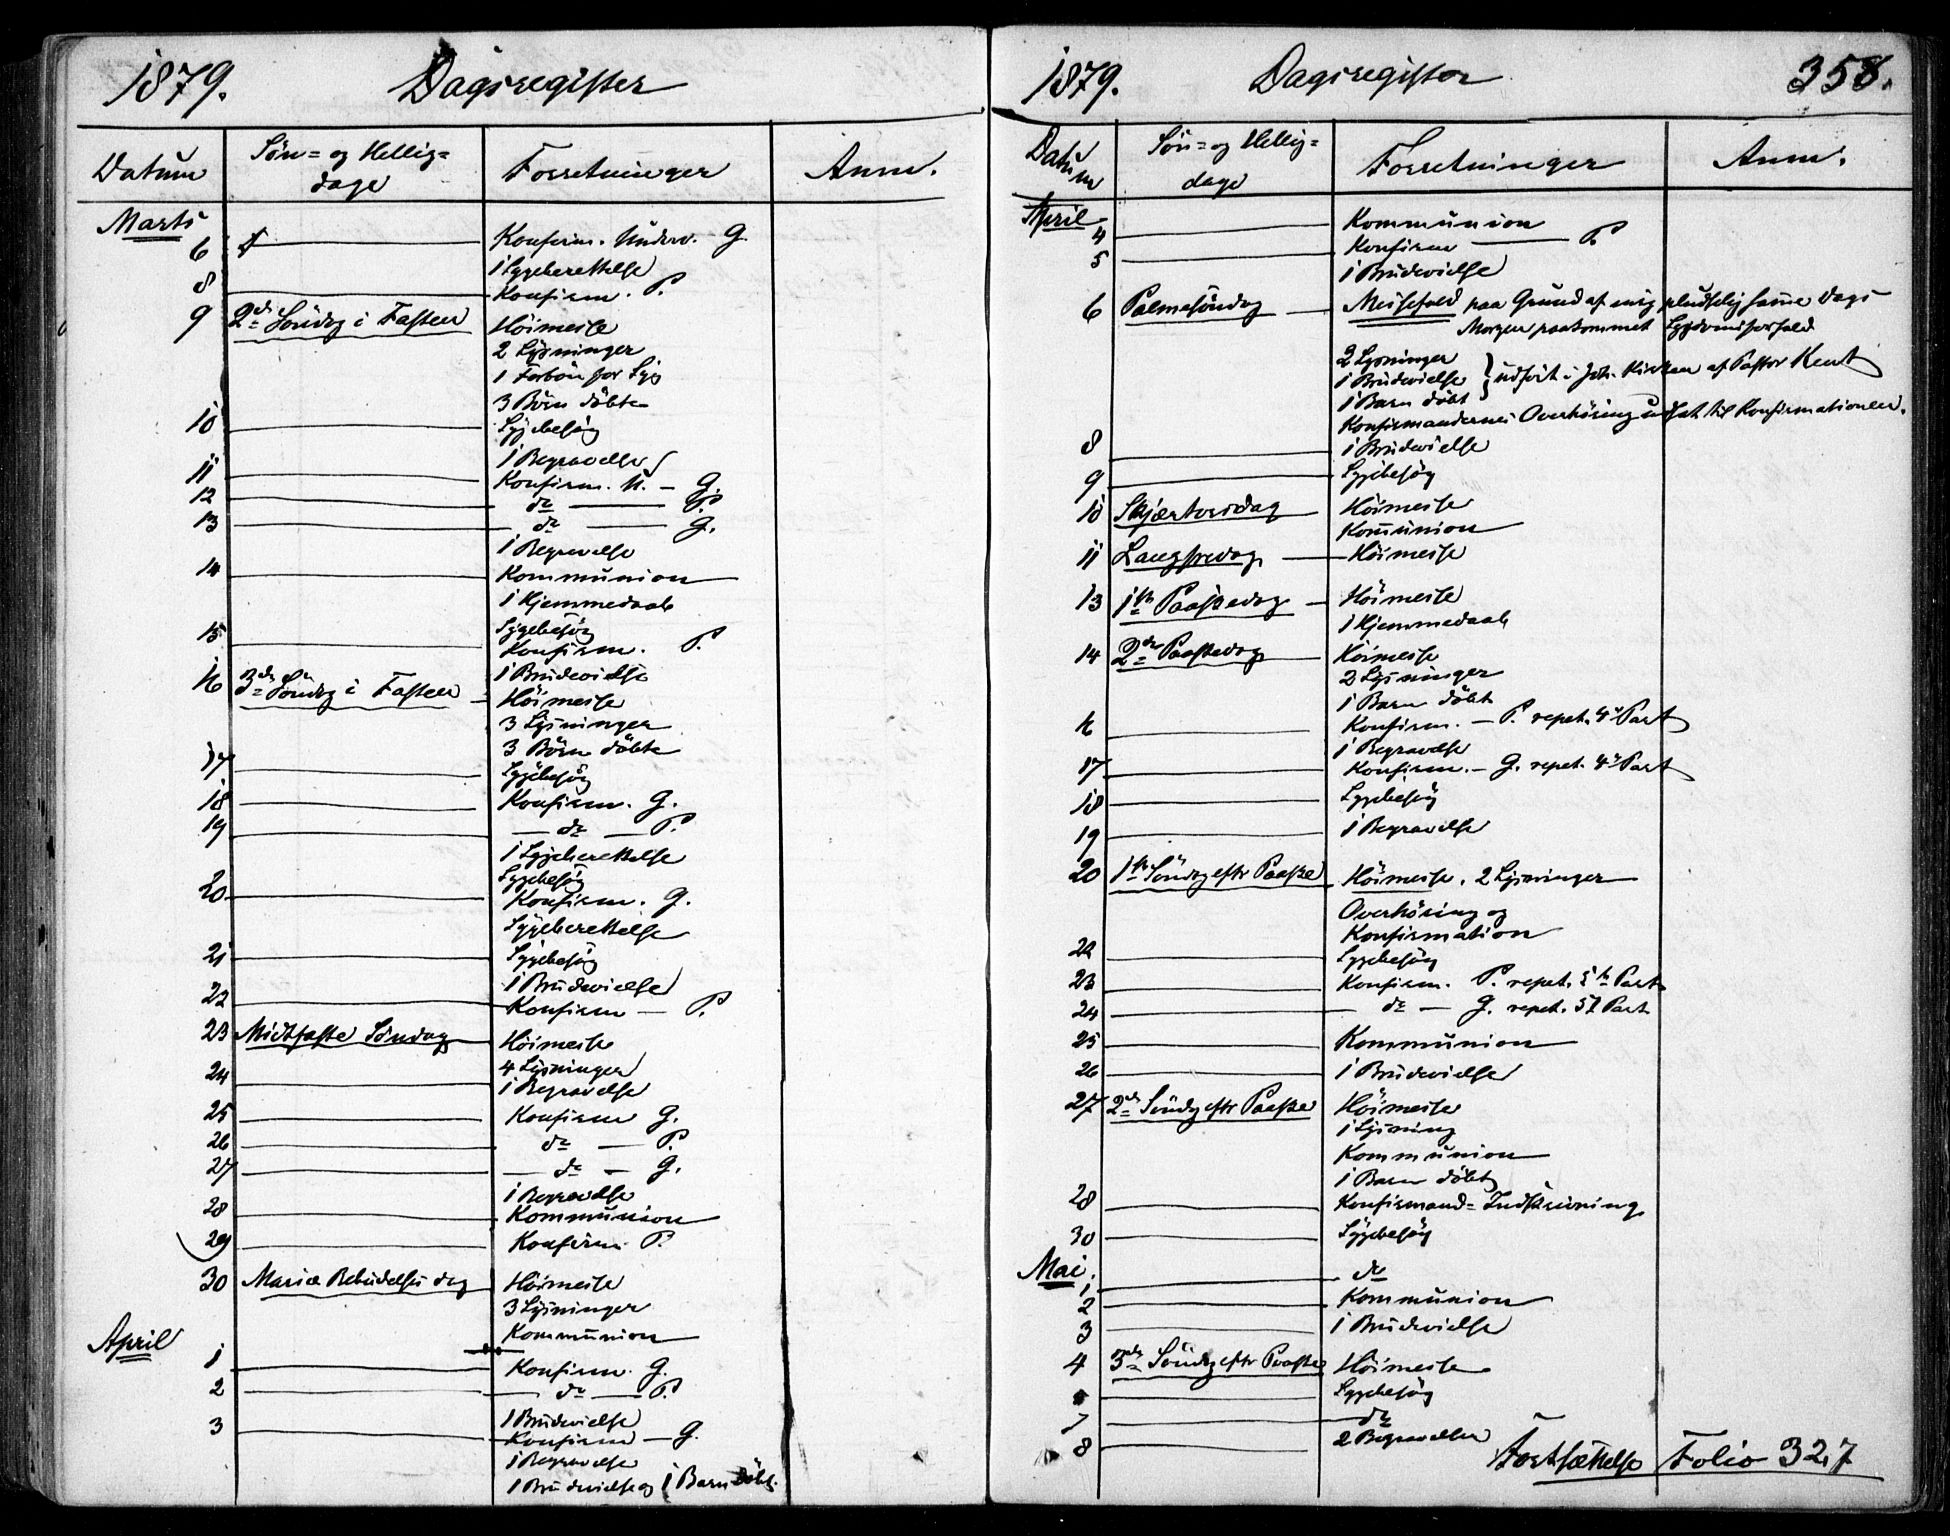 1879. Dagsregister
Datum Søn- og Hellig-dage Forretninger Anm.
Marts
6 Konfirm. Underv. G.
1 Sygeberettelse
8 Konfirm. P.
9 2den Söndag i Fasten Höimesse
2 Lysninger
1 Forbön for Syg
3 Börn döbte
10 Sygebesög
1 Begravelse
11 Konfirm. U. — G.
12 do — P.
13 do — G.
1 Begravelse
14 Kommunion
1 Hjemmedaab
15 Sygebesög
Konfirm. P.
1 Brudevielse
16 3die Söndag i Fasten Höimesse
3 Lysninger
3 Börn döbte
17 Sygebesög
18 Konfirm. G.
19 — do — P.
1 Sygeberettelse
Sygebesög
20 Konfirm. G.
Sygeberettelse
21 Sygebesög
1 Brudevielse
22 Konfirm — P.
23 Midtfaste Söndag Höimesse
4 Lysninger
24 1 Begravelse
25 Konfirm G.
26 do — P.
27 — do — G.
1 Begravelse
28 Kommunion
29 Konfirm. P.
30 Mariæ Bebudelses dag Höimesse
3 Lysninger
Kommunion
April
1 Konfirm. G.
2 — do — P.
1 Brudevielse
3 Konfirm — G.
1 Begravelse
1 Brudevielse og 1 Barn döbt.
1879. Dagsregister 358.
Datum Søn- og Hellig-dage Forretninger Anm.
April
4 Kommunion
5 Konfirm — P.
1 Brudevielse
6 Palmesöndag — Messefald paa Grund af mig pludselig samme Dags
Morgen paakommet Sygdomsforfald
2 Lysninger
1 Brudevielse } udfört i Joh. Kirken af Pastor Kent
1 Barn döbt
Konfirmandernes Overhöring udsat til Konfirmationen.
8 1 Brudevielse
9 Sygebesög
10 Skjærtorsdag Höimesse
Kommunion
11 Langfredag — Höimesse
13 1ste Paaskedag — Höimesse
1 Hjemmedaab
14 2den Paaskedag Höimesse
2 Lysninger
1 Barn döbt
16 Konfirm. — P. repet. 4de Part
1 Begravelse
17 Konfirm. — G. repet. 4de Part
18 Sygebesög
19 1 Begravelse
20 1ste Söndag eftr Paaske Höimesse. 2 Lysninger
Overhöring og
Konfirmation
22 Sygebesög
23 Konfirm. P. repet. 5te Part
24 do — G. repet. 5te Part
25 Kommunion
26 1 Brudevielse
27 2den Söndag eftr Paaske Höimesse
1 Lysning
Kommunion
1 Barn döbt
28 Konfirmand-Indskrivning
30 Sygebesög
Mai.
1 do
2 Kommunion
3 1 Brudevielse
4 3die Söndag eftr Paaske Höimesse
5 Sygebesög
7 do
8 2 Begravelser
Fortsættelse Folio 327